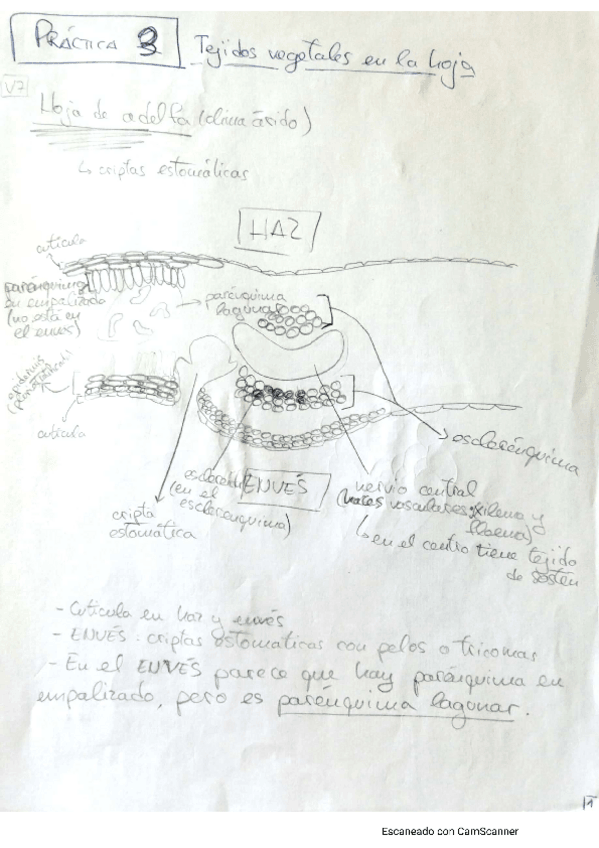 PRÁCTICA 3
Tejidos vegetales en la hoja
V7
Hoja de adelfa (clima árido)
↳ criptas estomáticas
HAZ
cutícula
parénquima
en empalizada
(no está en
el envés)
→ parénquima
lagunar
epidermis
cutícula
esclerénquima
(en el
esclerenquima)
ENVÉS
nervio central
(vasos vasculares: xilema y
floema)
↳ en el centro tiene tejido
de sostén
cripta
estomática
- Cutícula en haz y envés
- ENVÉS: criptas estomáticas con pelos o tricomas
- En el ENVÉS parece que hay parénquima en
empalizado, pero es parénquima lagunar.
Escaneado con CamScanner